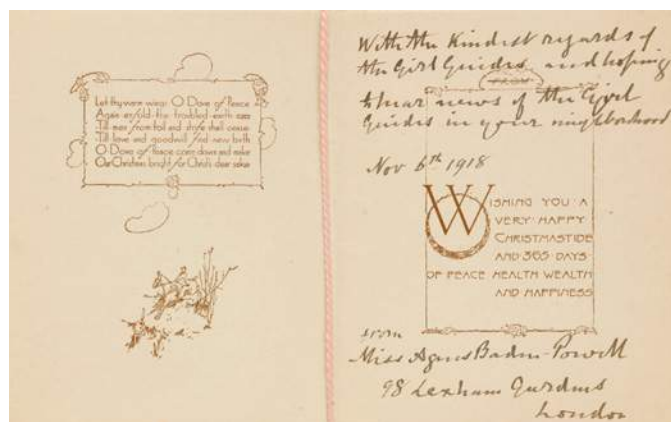 Let thy warm wings O Dove of Peace
Again enfold the troubled earth
Till men from toil and strife shall cease
Till love and goodwill find new birth
O Dove of Peace come down and make
Our Christmas bright for Christ's dear sake
With the kindest regards of
the Girl Guides and hoping
FROM
to hear news of the Girl
Guides in your neighborhood
Nov 6th 1918
WISHING YOU A
VERY HAPPY
CHRISTMASTIDE
AND 365 DAYS
OF PEACE HEALTH WEALTH
AND HAPPINESS
from
Miss Agnes Baden-Powell
98 Lexham Gardens
London